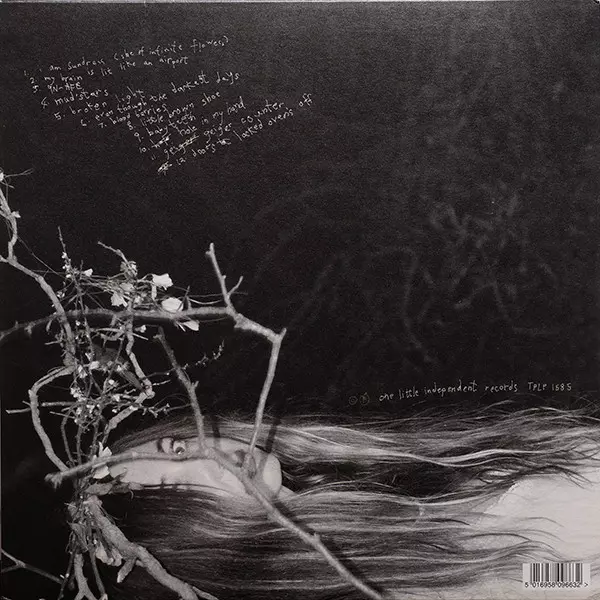 1. i am sundrax (sibe of infinite flowers)
2. my brain is lit like an airport
4. mud stars
5. broken light
6. even though the darkest days
7. blood berries
8. little brown shoe
9. baby
10. hole in my hand
11. geiger counter
12. doors locked ovens off
one little independent records TPLP 1685
5 016958 096632 >